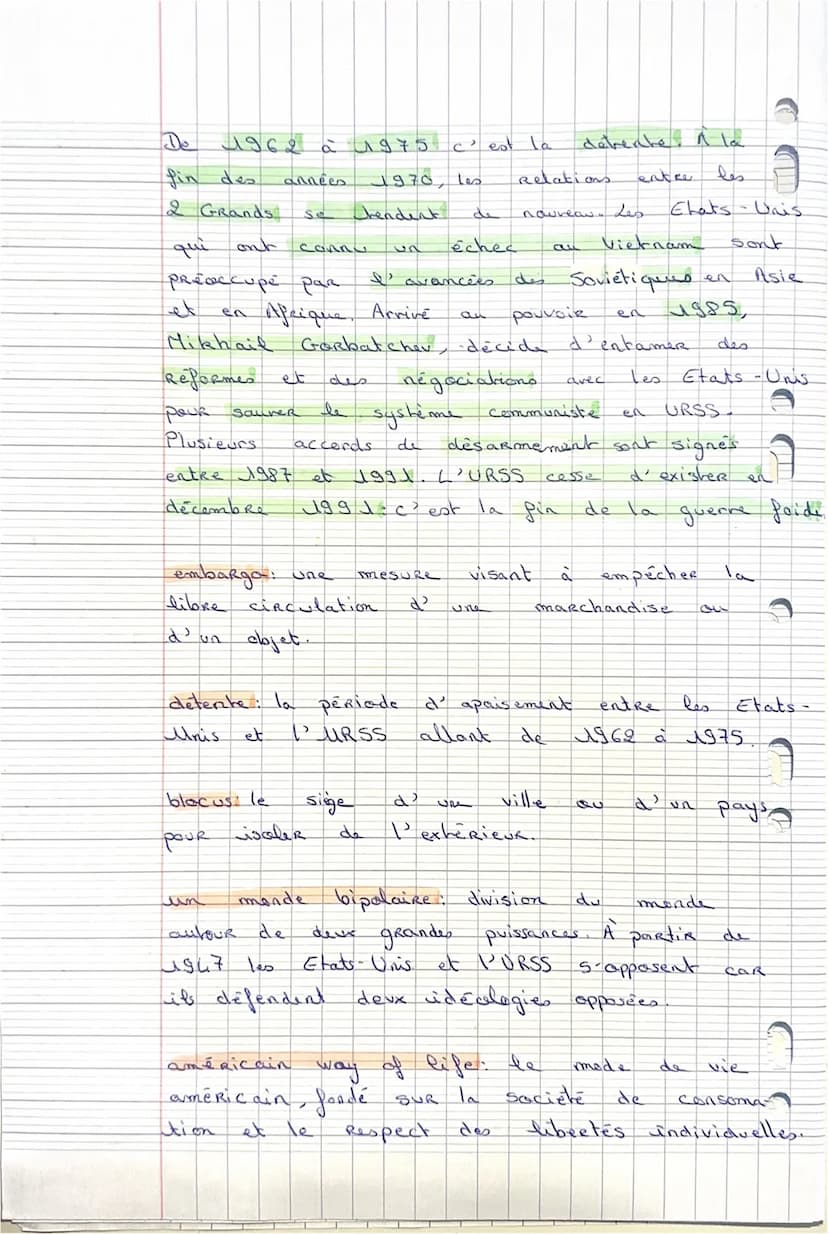 De 1962 à 1975 c'est la détente. À la
fin des années 1970, les Relations entre les
2 Grands se tendent de nouveau. Les Etats-Unis
qui ont connu un échec au Vietnam sont
préoccupé par l'avancées des Soviétiques en Asie
et en Afrique. Arrivé au pouvoir en 1985,
Mikhail Gorbatchev, décide d'entamer des
Réformes et des négociations avec les Etats-Unis
pour sauver le système communiste en URSS.
Plusieurs accords de désarmement sont signés
entre 1987 et 1991. L'URSS cesse d'exister en
décembre 1991 : c'est la fin de la guerre foide
embargo : une mesure visant à empécher la
libre circulation d'une marchandise ou
d'un objet.
détente : la période d'apaisement entre les Etats-
Unis et l'URSS allant de 1962 à 1975.
blocus : le siège d'une ville ou d'un pays
pour isoler de l'extérieur.
un monde bipolaire : division du monde
autour de deux grandes puissances. À partir de
1947 les Etats-Unis et l'URSS s'opposent car
ils défendent deux idéologies opposées.
américain way of life : le mode de vie
américain, fondé sur la société de consoma-
tion et le respect des libeetés individuelles.